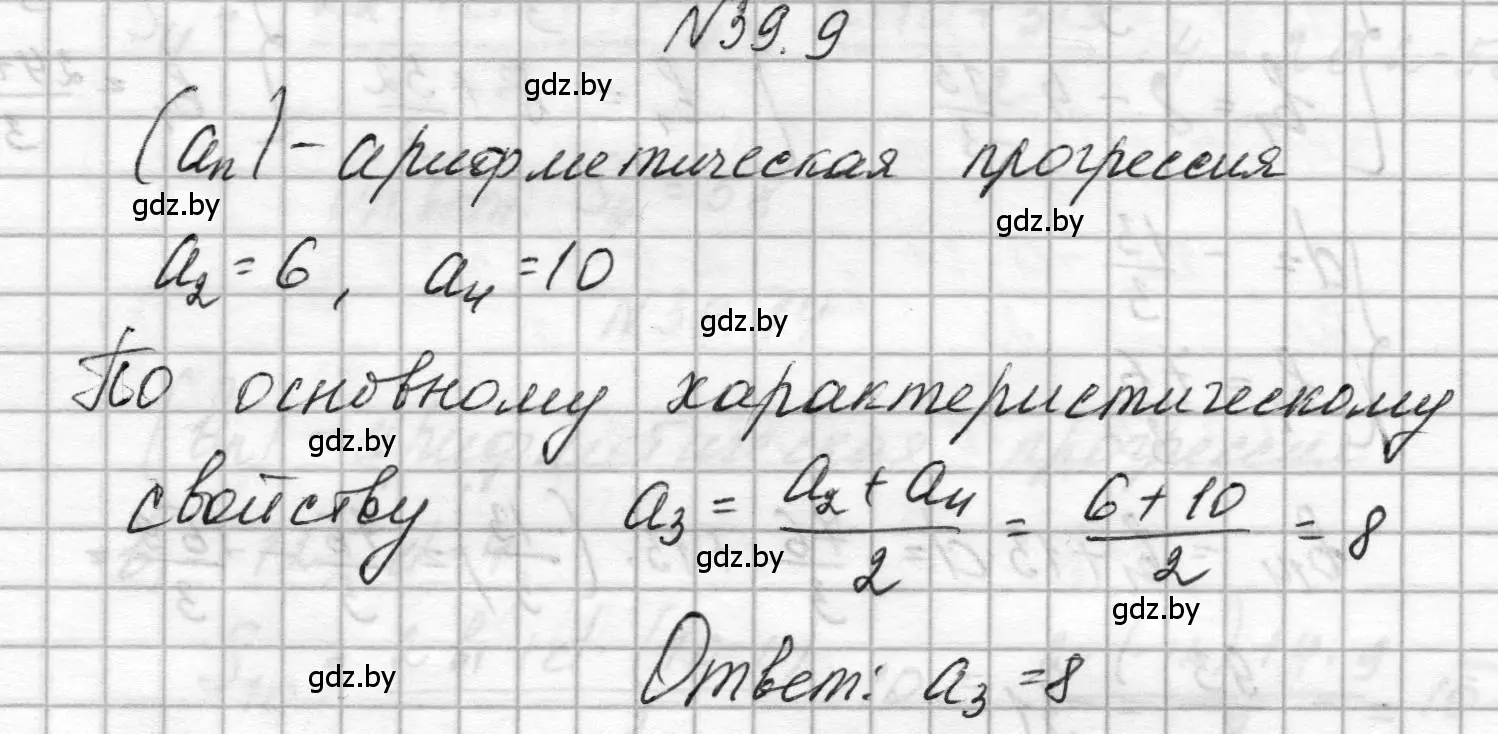 №39.9
gdz.by
(aₙ) - арифметическая прогрессия
gdz.by gdz.by
a₂ = 6, a₄ = 10
gdz.by
По основному характеристическому
gdz.by
свойству a₃ = (a₂ + a₄)/2 = (6 + 10)/2 = 8
gdz.by
gdz.by
gdz.by Ответ: a₃ = 8